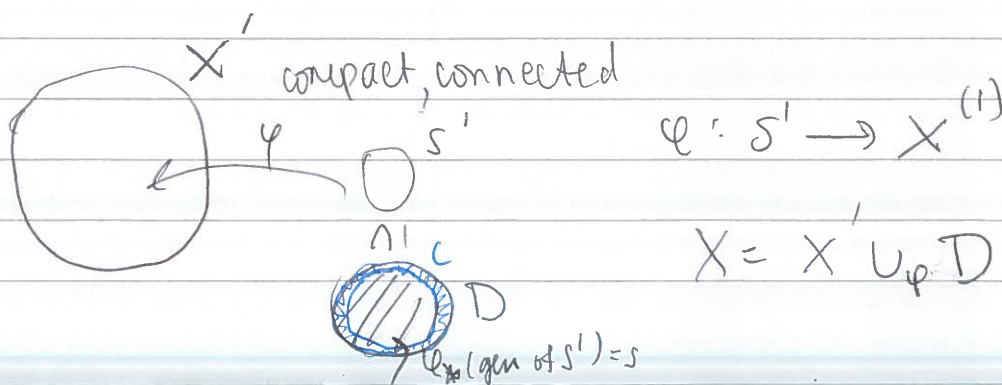 X'
compact, connected
φ
S¹
φ : S¹ → X⁽¹⁾
∩|
C
D
X = X' ∪_φ D
φ_*(gen of S¹) = s